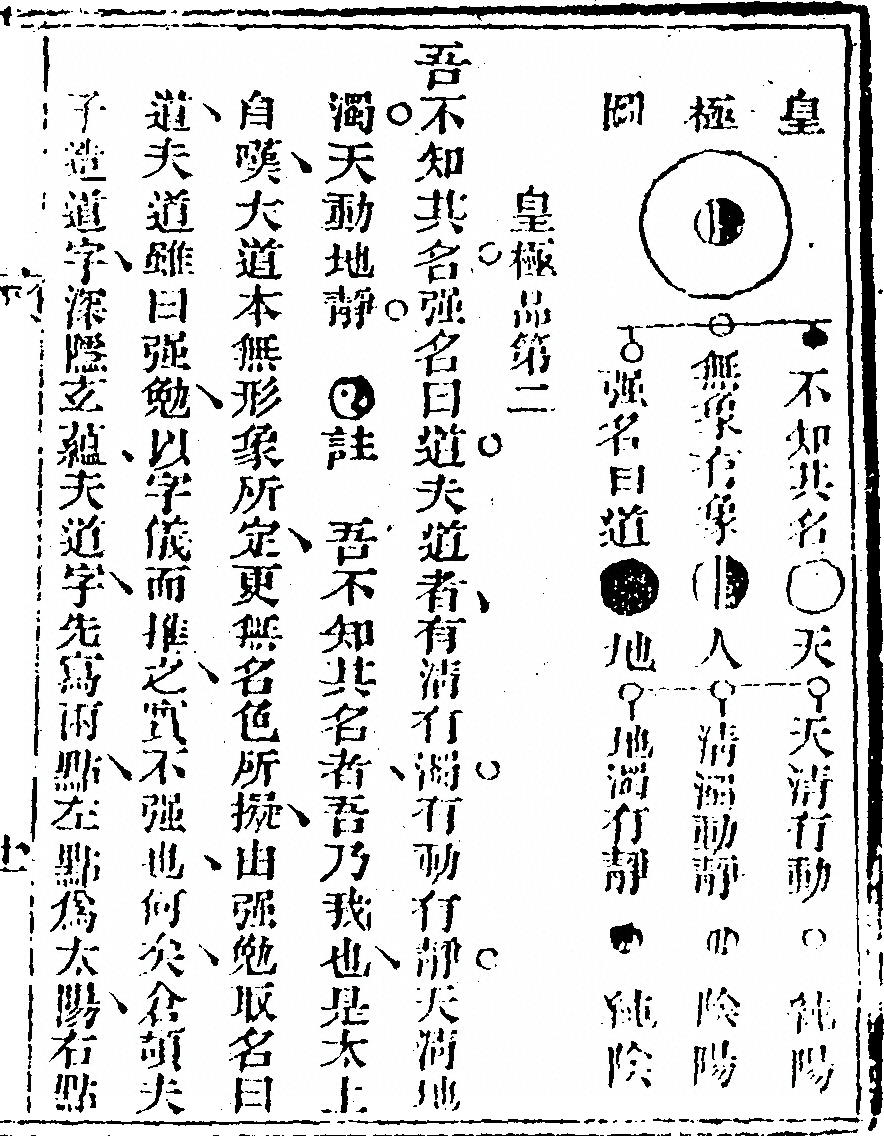 皇極圖
不知其名 天 天清有動 純陽
無象有象 人 清濁動靜 陰陽
强名曰道 地 地濁有靜 純陰
皇極品第二
吾不知其名强名曰道夫道者有清有濁有動有靜天清地
濁天動地靜 註 吾不知其名者吾乃我也是太上
自嘆大道本無形象所定更無名色所擬由强勉取名曰
道夫道雖曰强勉以字儀而推之實不强也何矣倉頡夫
子造道字深隱玄蘊夫道字先寫兩點左點爲太陽右點